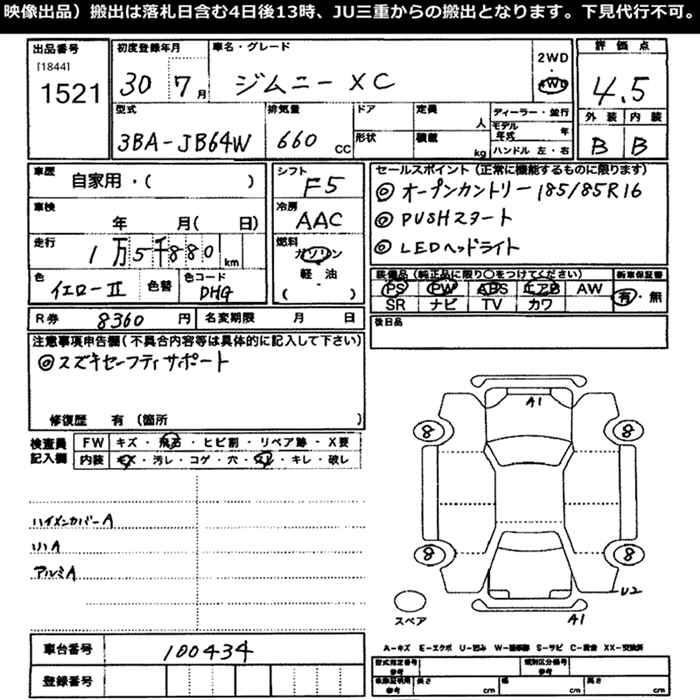 映像出品）搬出は落札日含む4日後13時、JU三重からの搬出となります。下見代行不可。
出品番号
[1844]
1521
初度登録年月 車名・グレード
30 7月 ジムニー XC
2WD
・
4WD
評価点
4.5
外装 内装
B B
型式 排気量 ドア 定員 ディーラー・並行
3BA-JB64W 660 CC
形状 積載 人 kg
モデル年式 年
ハンドル 左・右
車歴 自家用・( )
車検 年 月( 日)
走行 1万5千880km
色 イエローII 色替 色コード DHG
シフト F5
冷房 AAC
燃料 ガソリン
軽・油
( )
セールスポイント（正常に機能するものに限ります）
◎オープンカントリー185/85R16
◎PUSHスタート
◎LEDヘッドライト
装備品（純正品に限り○をつけてください） 新車保証書
PS PW ABS エアB AW 有・無
SR ナビ TV カワ
後日品
R券 8360円 名変期限 月 日
注意事項申告欄（不具合内容等は具体的に記入して下さい）
◎スズキセーフティサポート
修復歴 有（箇所 ）
検査員記入欄
FW キズ・飛石・ヒビ割・リペア跡・X要
内装 キズ・汚レ・コゲ・穴・スレ・キレ・破レ
ハイメンカバーA
リハA
アルミA
A1
8 8
8 8
U2
A1
スペア
A-キズ E-エクボ U-凹み W-補修跡 S-サビ C-腐食 XX-交換済
車台番号 100434
登録番号
型式指定番号 参考 類別区分番号 参考
車検証明用 参考 長さ cm 幅 cm 高さ cm